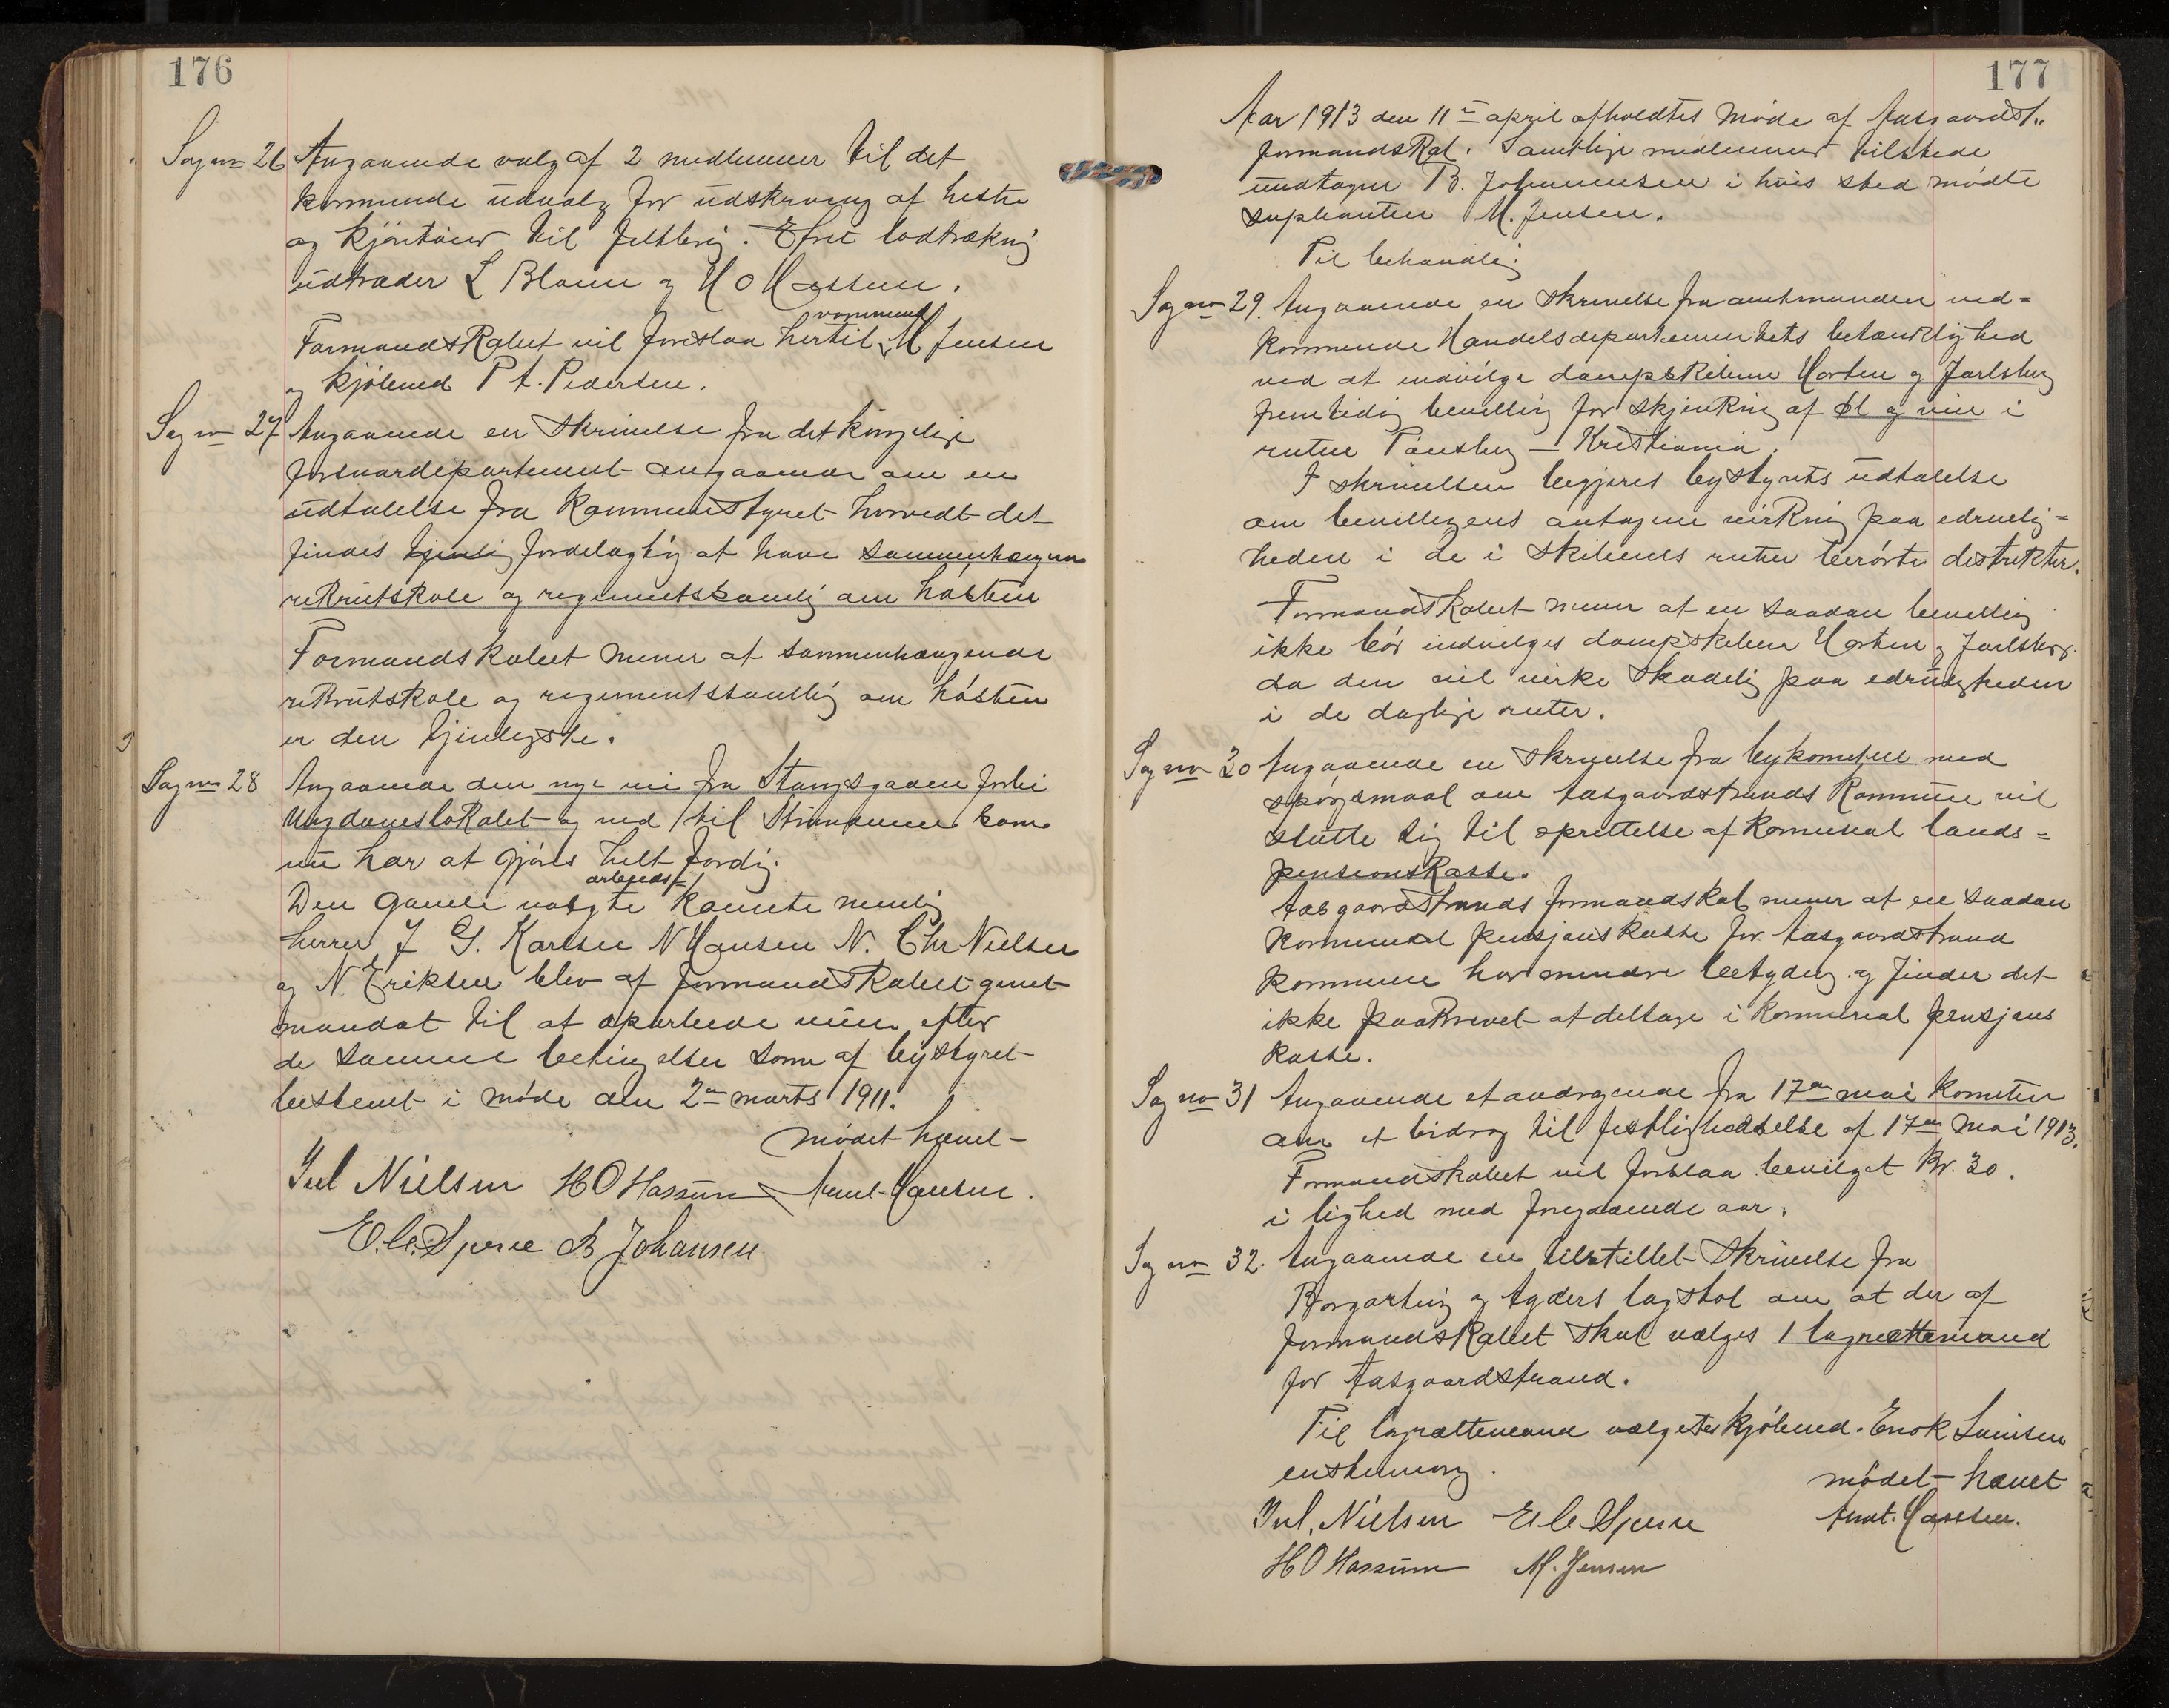 176
Sag no 26 Angaaende valg af 2 medlemmer til det
kommende udvalg for udskrivning af heste
og kjøretøier til feltbrug. Efter lodtrækning
udtræder L Blom og H O Hassum.
Formandskabet vil foreslaa hertil vognmand M Jensen
og kjøbmd P A. Pedersen.
Sag no 27 Angaaende en skrivelse fra det kongelige
forsvardepartement angaaende om en
udtalelse fra kommunestyret hvorvidt det
findes tjenlig fordelagtig at have sammenhængende
rekrutskole og regimentssamling om høsten
Formandskabet mener at sammenhængende
rekrutskole og regimentssamling om høsten
er den tjenligste.
Sag no 28 Angaaende den nye vei fra Stangsgaden forbi
Ungdomslokalet og ned til Strandveien som
nu har at gjøres helt færdig.
Den gamle valgte arbeids komite nemlig
herrer J G. Karlsen N Hansen N. Chr Nielsen
og N. Eriksen blev af formandskabet givet
mandat til at oparbeide veien efter
de samme betingelser som af bystyret
bestemt i møde den 2en marts 1911.
mødet hævet
Jul Nielsen H O Hassum Amt. Hansen.
E. C. Sperre B Johansen
177
Aar 1913 den 11te april afholdtes møde af Aasgaardst.
formandskab. Samtlige medlemmer tilstede
undtagen B. Johannesen i hvis sted mødte
suplianten M. Jensen.
Til behandling:
Sag no 29. Angaaende en skrivelse fra amtmanden ved=
kommende Handelsdepartementets betænklighed
ved at indvilge dampskibene Horten og Jarlsberg
fremtidig bevilling for skjenkning af øl og vin i
ruten Tønsberg – Kristiania.
I skrivelsen begjæres bystyrets udtalelse
om bevillingens antagne virkning paa edruelig=
heden i de i skibenes ruter berørte distrikter.
Formandskabet mener at en saadan bevilling
ikke bør indvilges dampskibene Horten og Jarlsberg
da den vil virke skadelig paa edrueligheden
i de daglige ruter.
Sag no 30 Angaaende en skrivelse fra bykomiteen med
spørgsmaal om Aasgaardstrands kommune vil
slutte sig til oprettelse af komunal lands=
pensionskasse.
Aasgaardstrands formandskab mener at en saadan
kommunal pensjonskasse for Aasgaardstrand
kommune har mindre betydning og finder det
ikke paakrævet at deltage i kommunal pensjons
kasse.
Sag no 31 Angaaende et andragende fra 17de mai komiteen
om et bidrag til festligholdelse af 17de mai 1913.
Formandskabet vil forslaa bevilget Kr. 30.
i lighed med foregaaende aar.
Sag no 32. Angaaende en tilstillet skrivelse fra
Borgarting og Agders lagstol om at der af
formandskabet skal vælges 1 lagrettemand
for Aasgaardstrand.
Til lagrættemand valgtes kjøbmd. Enok
enstemmig.
mødet hævet
Jul. Nielsen E. C. Sperre Amt. Hansen.
H O Hassum M. Jensen